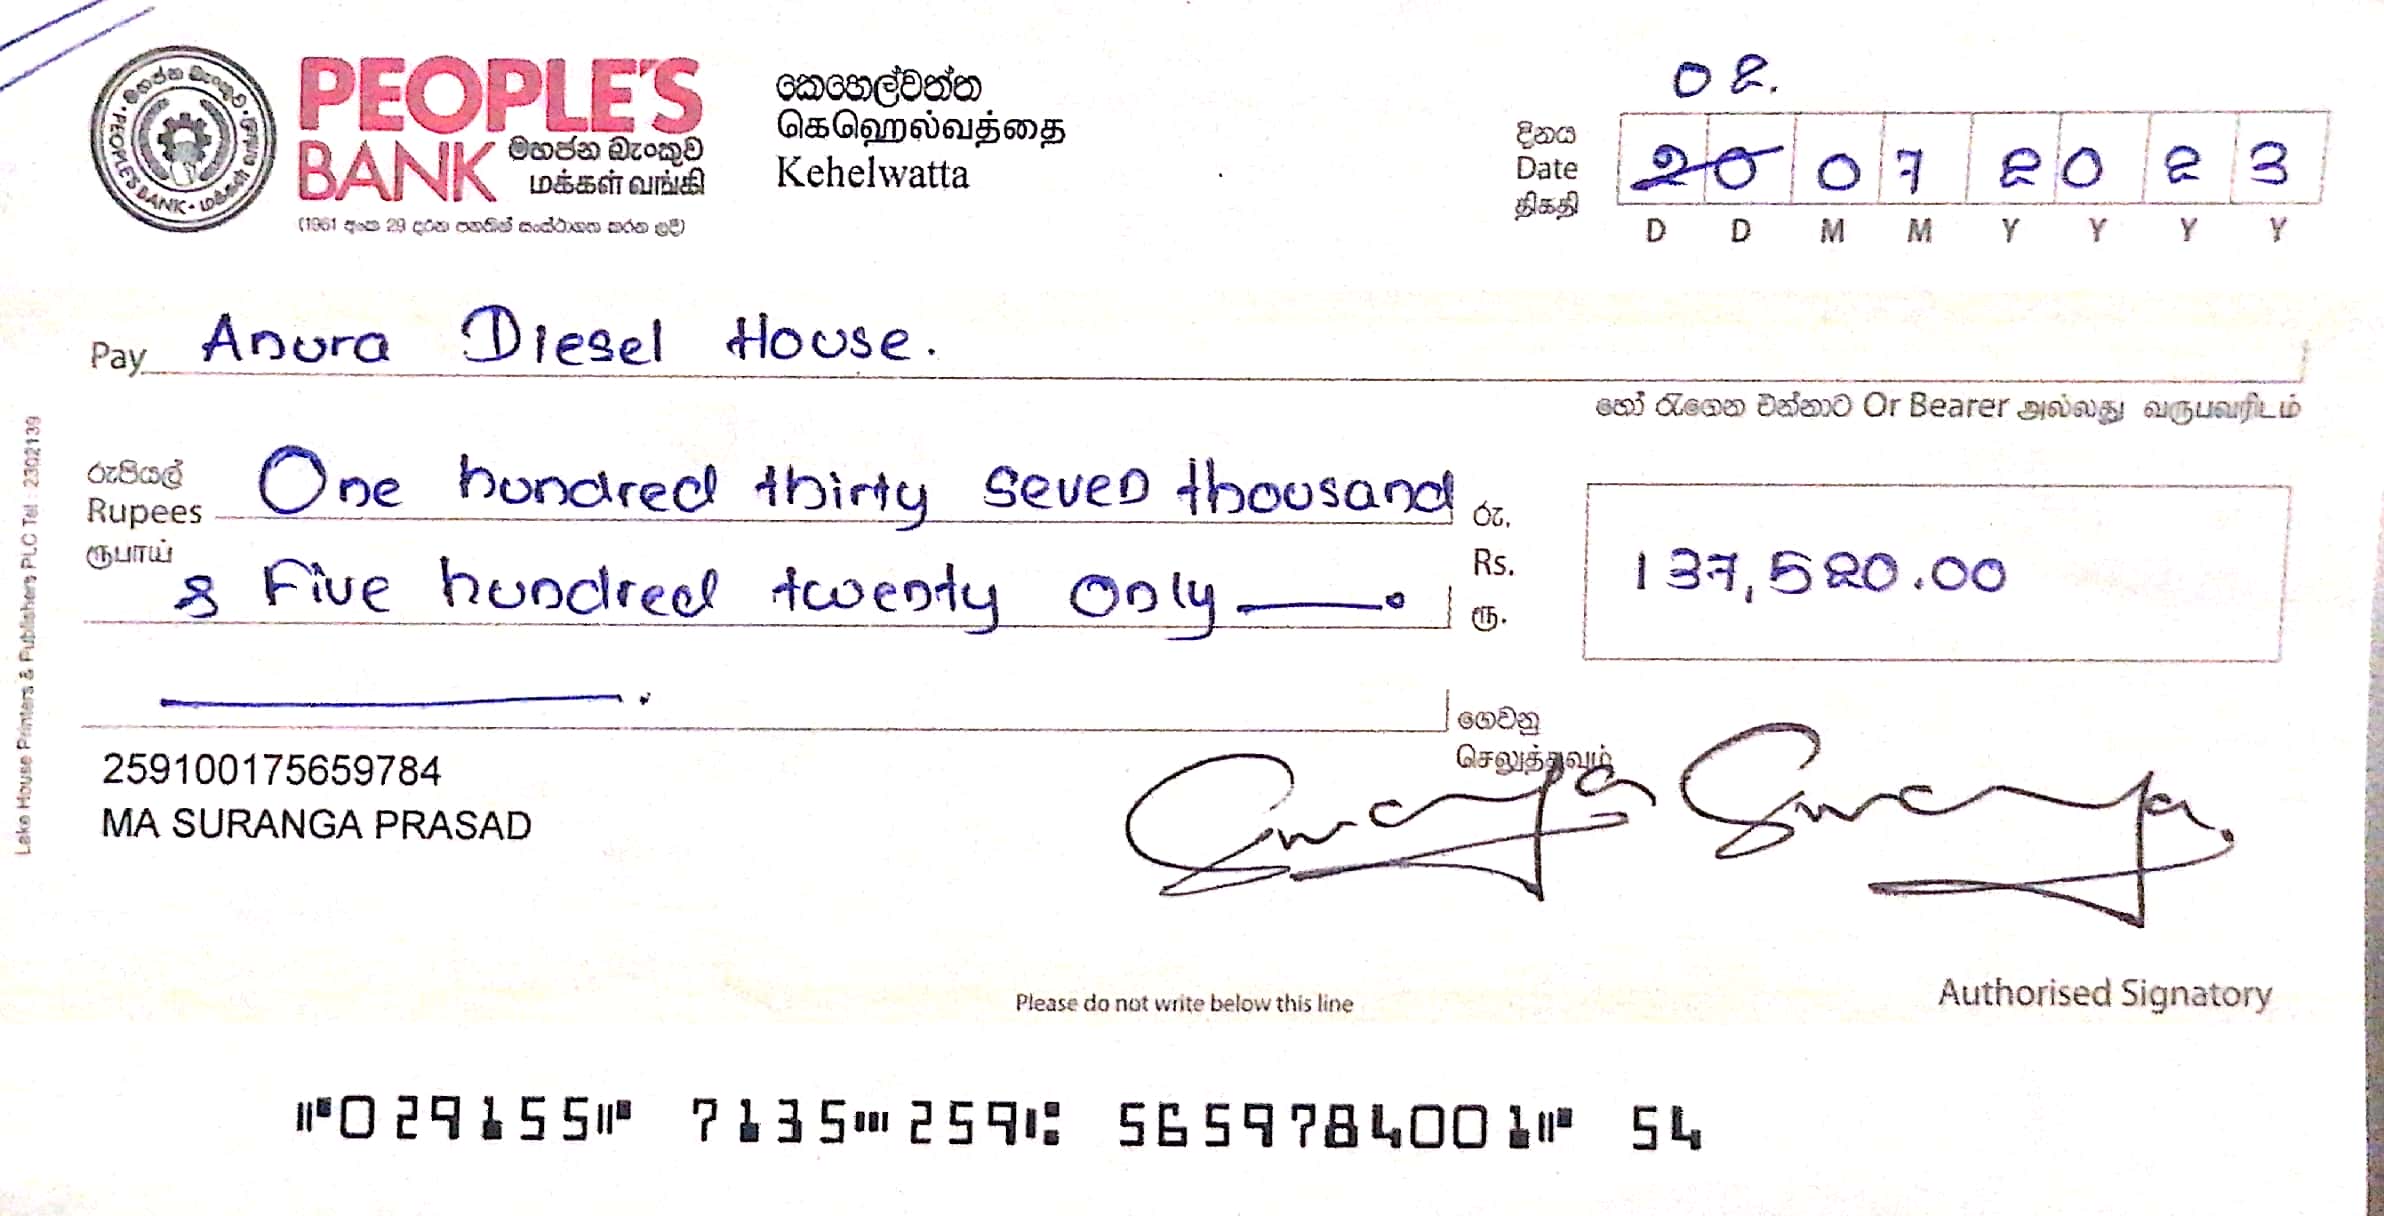 02.
PEOPLE'S
BANK මහජන බැංකුව
மக்கள் வங்கி
(1961 අංක 29 දරන පනතින් සංස්ථාගත කරන ලදි)
මහජන බැංකුව · மக்கள் வங்கி · PEOPLE'S BANK
කෙහෙල්වත්ත
கெஹெல்வத்தை
Kehelwatta
දිනය
Date
திகதி
20 07 2023
D D M M Y Y Y Y
Pay Anura Diesel House.
හෝ රැගෙන එන්නාට Or Bearer அல்லது வருபவரிடம்
රුපියල්
Rupees
ரூபாய்
One hundred thirty seven thousand
& Five hundred twenty only
රු.
Rs.
ரூ.
137,520.00
ගෙවනු
செலுத்தவும்
259100175659784
MA SURANGA PRASAD
Authorised Signatory
Please do not write below this line
⑈029155⑈ 7135⑉259⑆ 5659784001⑈ 54
Lake House Printers & Publishers PLC Tel : 2302139